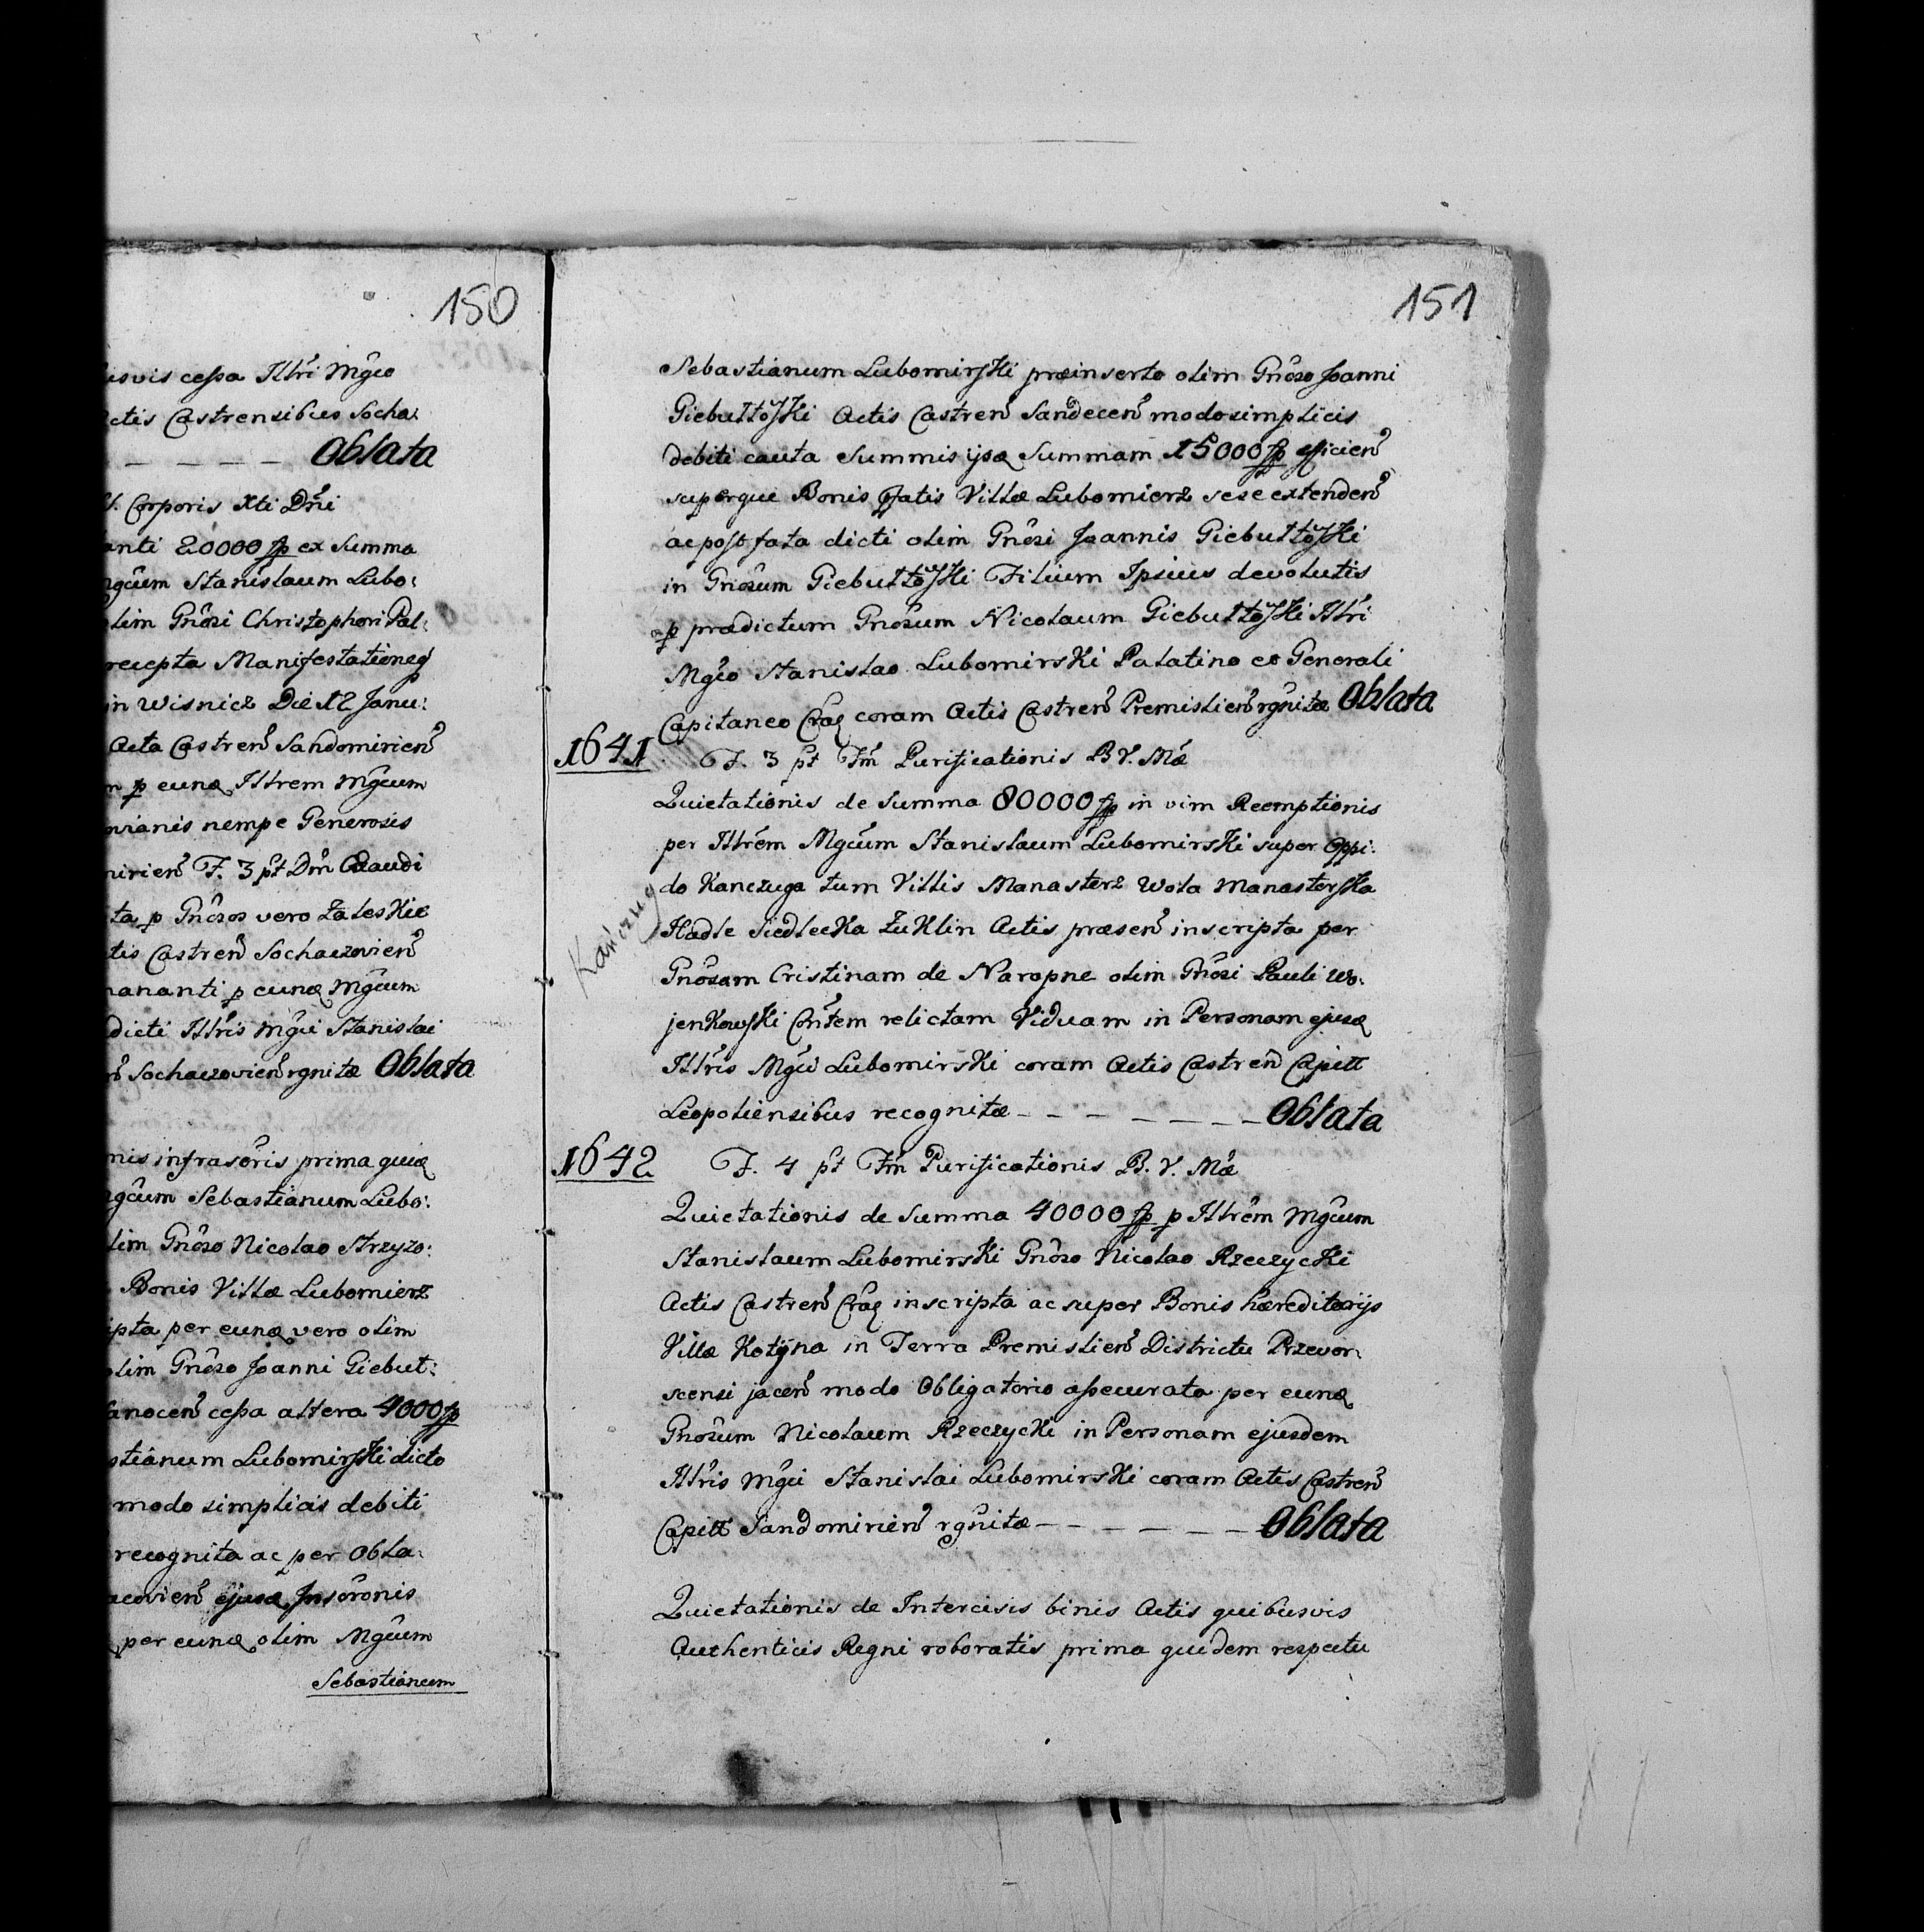 150
usvis cessa Illri Mgco
Actis Castrensibus Socha:
– – – – – Oblata
Corporis Xti Dni
anti 20000 fp ex Summa
Mgcum Stanislaum Lubo:
olim Gnosi Christophori Pal:
recepta Manifestationeq
in Wisnicz Die 12 Janu:
Acta Castren Sandomirien
p eunq Illrem Mgcum
nianis nempe Generosis
mirien F. 3 pt Dm Exaudi
ta p Gnosos vero Zaleskie
tis Castren Sochaczovien
nananti p eunq Mgcum
dicti Illris Mgci Stanislai
Sochaczovien rgnitæ Oblata
mis infrascris prima quiq
Mgcum Sebastianum Lubo:
olim Gnoso Nicolao Strzyzo:
Bonis Villæ Lubomierz
ipta per eunq vero olim
olim Gnoso Joanni Giebut:
Sanocen cessa altera 4000 fp
stianum Lubomirski dicto
modo simplicis debiti
recognita ac per Obla:
acovien ejusq Inscronis
per eunq olim Mgcum
Sebastianum
151
Sebastianum Lubomirski præinserto olim Gnoso Joanni
Giebułtowski Actis Castren Sandecen modo simplicis
debiti cauta Summis ijsq Summam 15000 fp efficien
superque Bonis pfatis Villæ Lubomierz sese extenden
ac post fata dicti olim Gnosi Joannis Giebułtowski
in Gnosum Giebułtowski Filium Ipsius devolutis
p prædictum Gnosum Nicolaum Giebułtowski Illri
Mgco Stanislao Lubomirski Palatino et Generali
Capitaneo Craq coram Actis Castren Premislien rgnitæ Oblata
1641 F. 3 pt Fm Purificationis B V. Mæ
Quietationis de Summa 80000 fp in vim Reemptionis
per Illrem Mgcum Stanislaum Lubomirski super Oppi:
do Kanczuga tum Villis Manasterz Wola Manasterska
Kańczug
Hadle Siedlecka Zuklin Actis præsen inscripta per
Gnosam Cristinam de Naropne olim Gnosi Pauli Wo:
jenkowski Contem relictam Viduam in Personam ejusq
Illris Mgci Lubomirski coram Actis Castren Capitt
Leopoliensibus recognitæ – – – – – – – Oblata
1642 F. 4 pt Fm Purificationis B. V. Mæ
Quietationis de Summa 40000 fp p Illrem Mgcum
Stanislaum Lubomirski Gnoso Nicolao Rzeczycki
Actis Castren Craq inscripta ac super Bonis hæreditarijs
Villæ Kotÿna in Terra Premislien Districtu Przevor:
scensi jacen modo Obligatorio assecurata per eunq
Gnosum Nicolaum Rzeczycki in Personam ejusdem
Illris Mgci Stanislai Lubomirski coram Actis Castren
Capitt Sandomirien rgnitæ – – – – – – – Oblata
Quietationis de Intercisis binis Actis quibusvis
Authenticis Regni roboratis prima quidem respectu